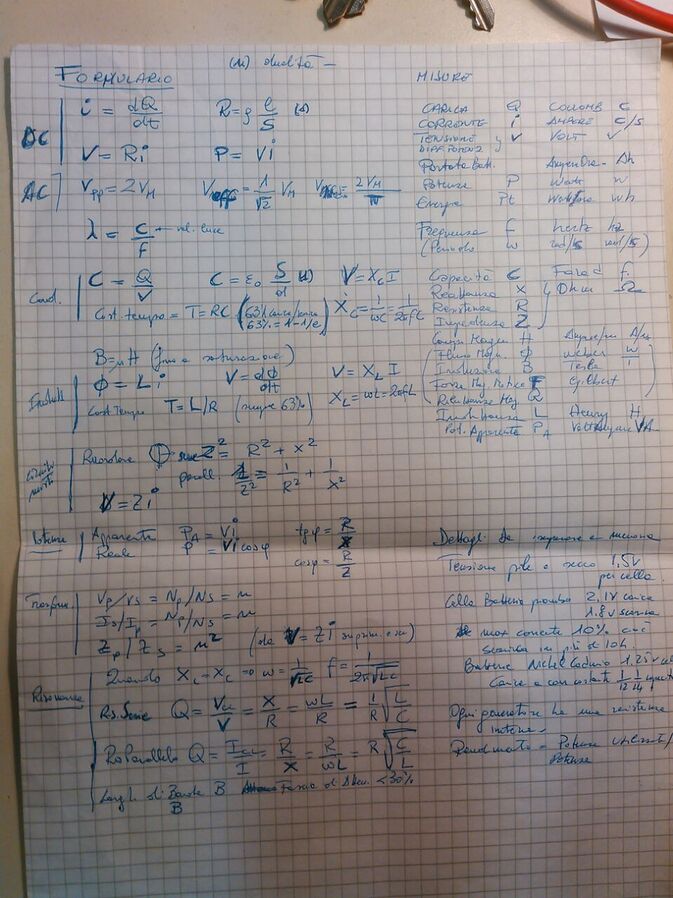 FORMULARIO
i = dQ/dt R = ρ l/S
DC
V = Ri P = Vi
AC
Vpp = 2VM Veff = 1/√2 VM = 2VM/π
λ = c/f ← vel. luce
Cond.
C = Q/V C = ε0 S/d V = XcI
Cost. tempo = T = RC (63% carica/scarica 63% = 1-1/e) Xc = 1/ωC = 1/2πfC
B = μH (fino a saturazione)
Φ = Li V = dΦ/dt V = XL I
Cost Tempo T = L/R (sempre 63%) XL = ωL = 2πfL
serie Z² = R² + X²
parall. 1/Z² = 1/R² + 1/X²
V = Zi
Apparente PA = Vi tgφ = R/X
Reale P = Vi cosφ cosφ = R/Z
Trasform.
Vp/Vs = Np/Ns = n
Is/Ip = Np/Ns = n
Zp/Zs = n² (da V = Zi
Risonanza
Quando XL - XC = 0 ω = 1/√LC f = 1/2π√LC
Ris. Serie Q = /V = X/R = ωL/R = 1/R √L/C
Ris Parallelo Q = /I = R/X = R/ωL = R√C/L
Largh. di Banda B <30%
B
MISURE
CARICA Q COULOMB C
CORRENTE i AMPERE C/s
TENSIONE DIFF POTENZ V VOLT V
Portata Batt. Ah
Potenza P Watt W
Energia Pt Wh
Frequenza f hertz hz
(Periodo ω rad/s
Capacità C Farad f.
Reattanza X
Resistenza R Ohm Ω
Impedenza Z
Campo Magn H A/m
Flusso Magn. Φ weber
Induzione B Tesla
Forza Mg Motrice F Gilbert
Reluttanza Mag
Induttanza L Henry H
Pot. Apparente PA VoltAmpere VA
Dettagli da imparare a memoria
Tensione pile a secco 1,5V
per cella.
Cella Batteria piombo 2,1V carica
1.8V scarica
max corrente 10% cioè
scarica in più di 10h
Batterie Nichel Cadmio 1,25V
Ogni generatore ha una resistenza
interna.
Rendimento = Potenza utilizzata/
Potenza